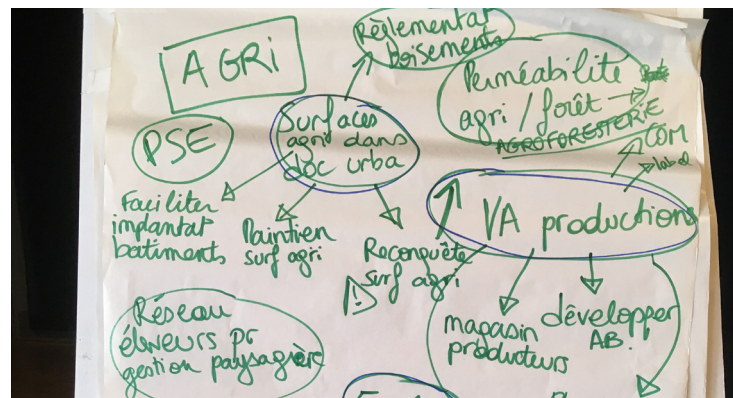 AGRI
Règlementat
boisements
Perméabilité
agri / forêt →
AGROFORESTERIE
PSE
Surfaces
agri dans
doc urba
COM
label
Faciliter
implantat
batiments
Maintien
surf agri
Reconquête
surf agri
VA productions
magasin
producteurs
développer
AB.
Réseau
éleveurs pr
gestion paysagière